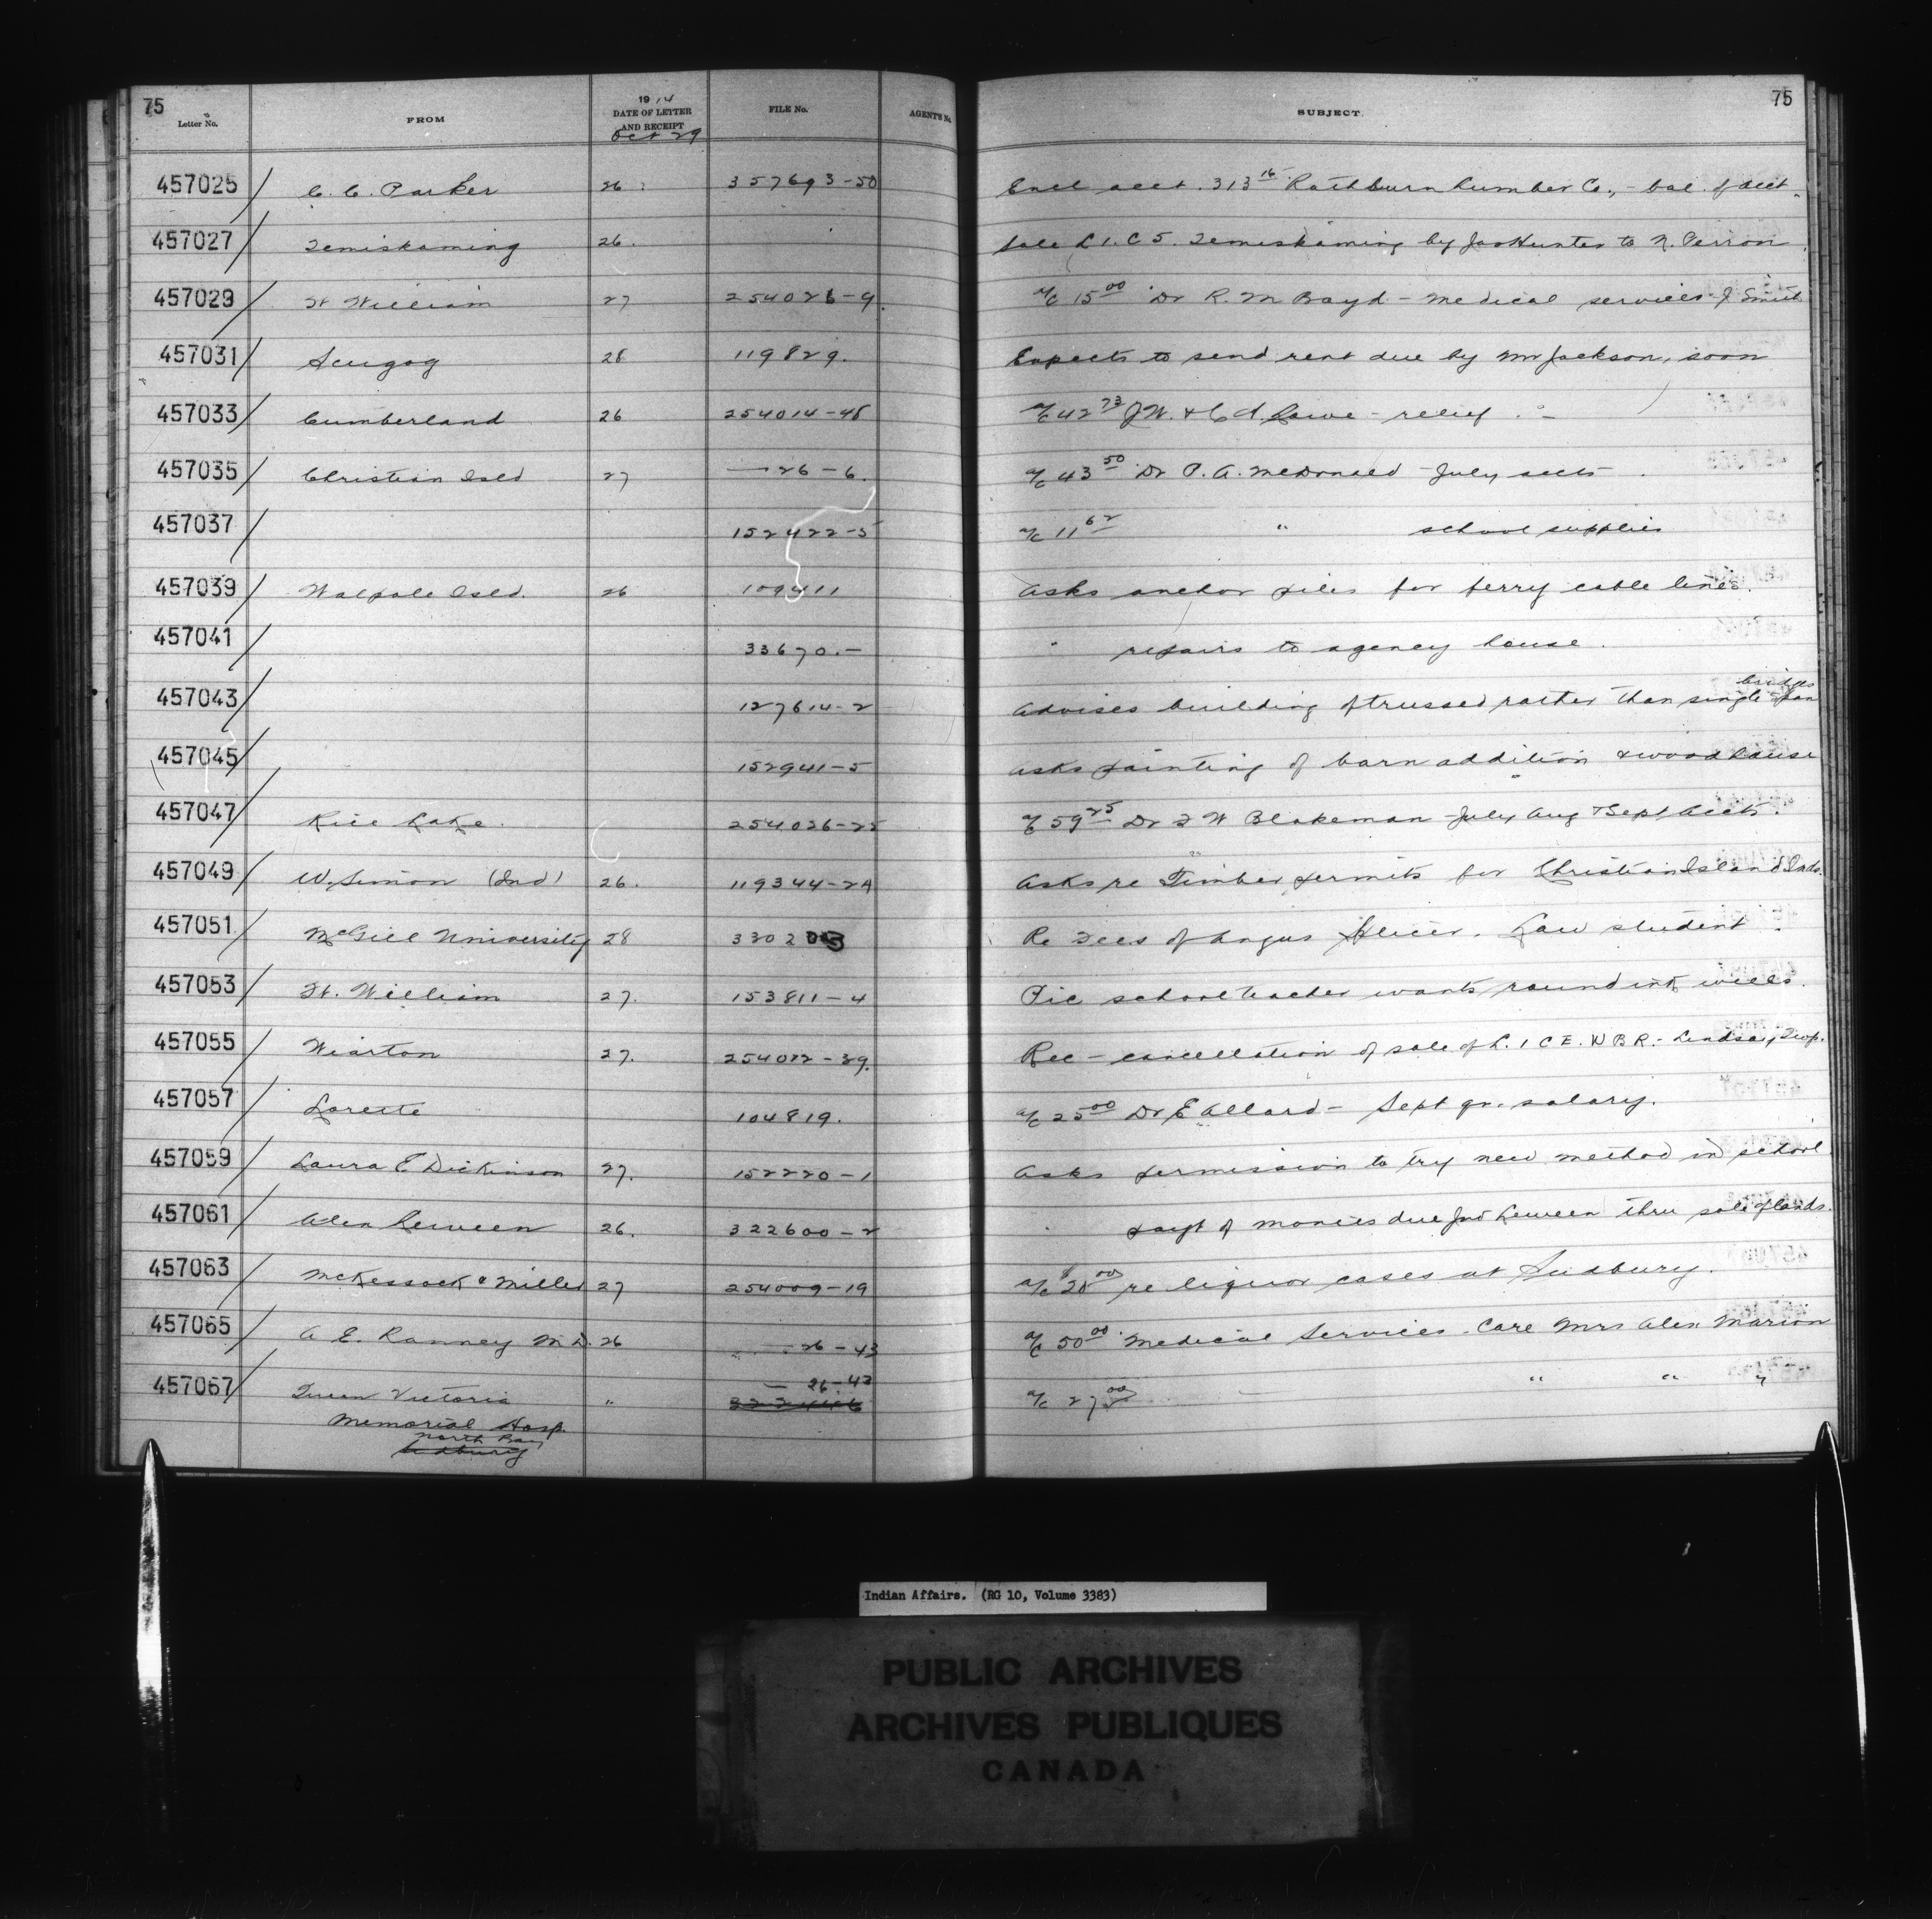 75
75
Letter No. FROM 1914 DATE OF LETTER AND RECEIPT FILE No. AGENT'S No. SUBJECT.
Oct 29
457025 C. C. Parker 26 357693-50 Encl acct. 313 16 Rathburn Lumber Co., - bal. of acct.
457027 Temiskaming 26. Sale L 1. C 5. Temiskaming by Jas Hunter to N. Perron
457029 Ft William 27 254026-9. a/c 15 00 Dr R. M Boyd - medical services J Smith
457031 Scugog 28 119829. Expects to send rent due by Mr Jackson, soon
457033 Cumberland 26 254014-45 a/c 42 73 J W. & C A. Lowe - relief. -
457035 Christian Isld 27 — 26-6. a/c 43 50 Dr P. A. McDonald July accts
457037 152422-5 a/c 11 62 " school supplies
457039 Walpole Isld. 26 109411 Asks anchor piles for ferry cable lines.
457041 33670.- " repairs to agency house.
457043 127614-2 Advises building of trussed rather than single span bridges
457045 152941-5 Asks painting of barn addition & woodhouse
457047 Rice Lake. 254026-25 a/c 59 25 Dr F W Blakeman July Aug & Sept accts.
457049 W. Simon (Ind) 26. 119344-2A Asks re Timber permits for Christian Island Inds.
457051 McGill University 28 330203 Re Fees of Angus Splicer. Law student.
457053 Ft. William 27. 153811-4 Pic school teacher wants round ink wells.
457055 Wiarton 27. 254022-39. Rec - cancellation of sale of L. 1 C E. W B R. - Lindsay Twp.
457057 Lorette 104819. a/c 25 00 Dr E Allard - Sept qr. salary.
457059 Laura E Dickinson 27. 152220-1 Asks permission to try new method in school
457061 Alex 26. 322600-2 " payt of monies due Ind thru sale of lands.
457063 McKessock & Miller 27 254009-19 a/c 20 00 re liquor cases at Sudbury.
457065 A E. Ranney M D. 26 26-43 a/c 50 00 Medical Services. Care Mrs Alex Marion
457067 Queen Victoria " — 26-43 a/c 27 00 " " "
Memorial Hosp.
North Bay
Sudbury
Indian Affairs. (RG 10, Volume 3383)
PUBLIC ARCHIVES
ARCHIVES PUBLIQUES
CANADA